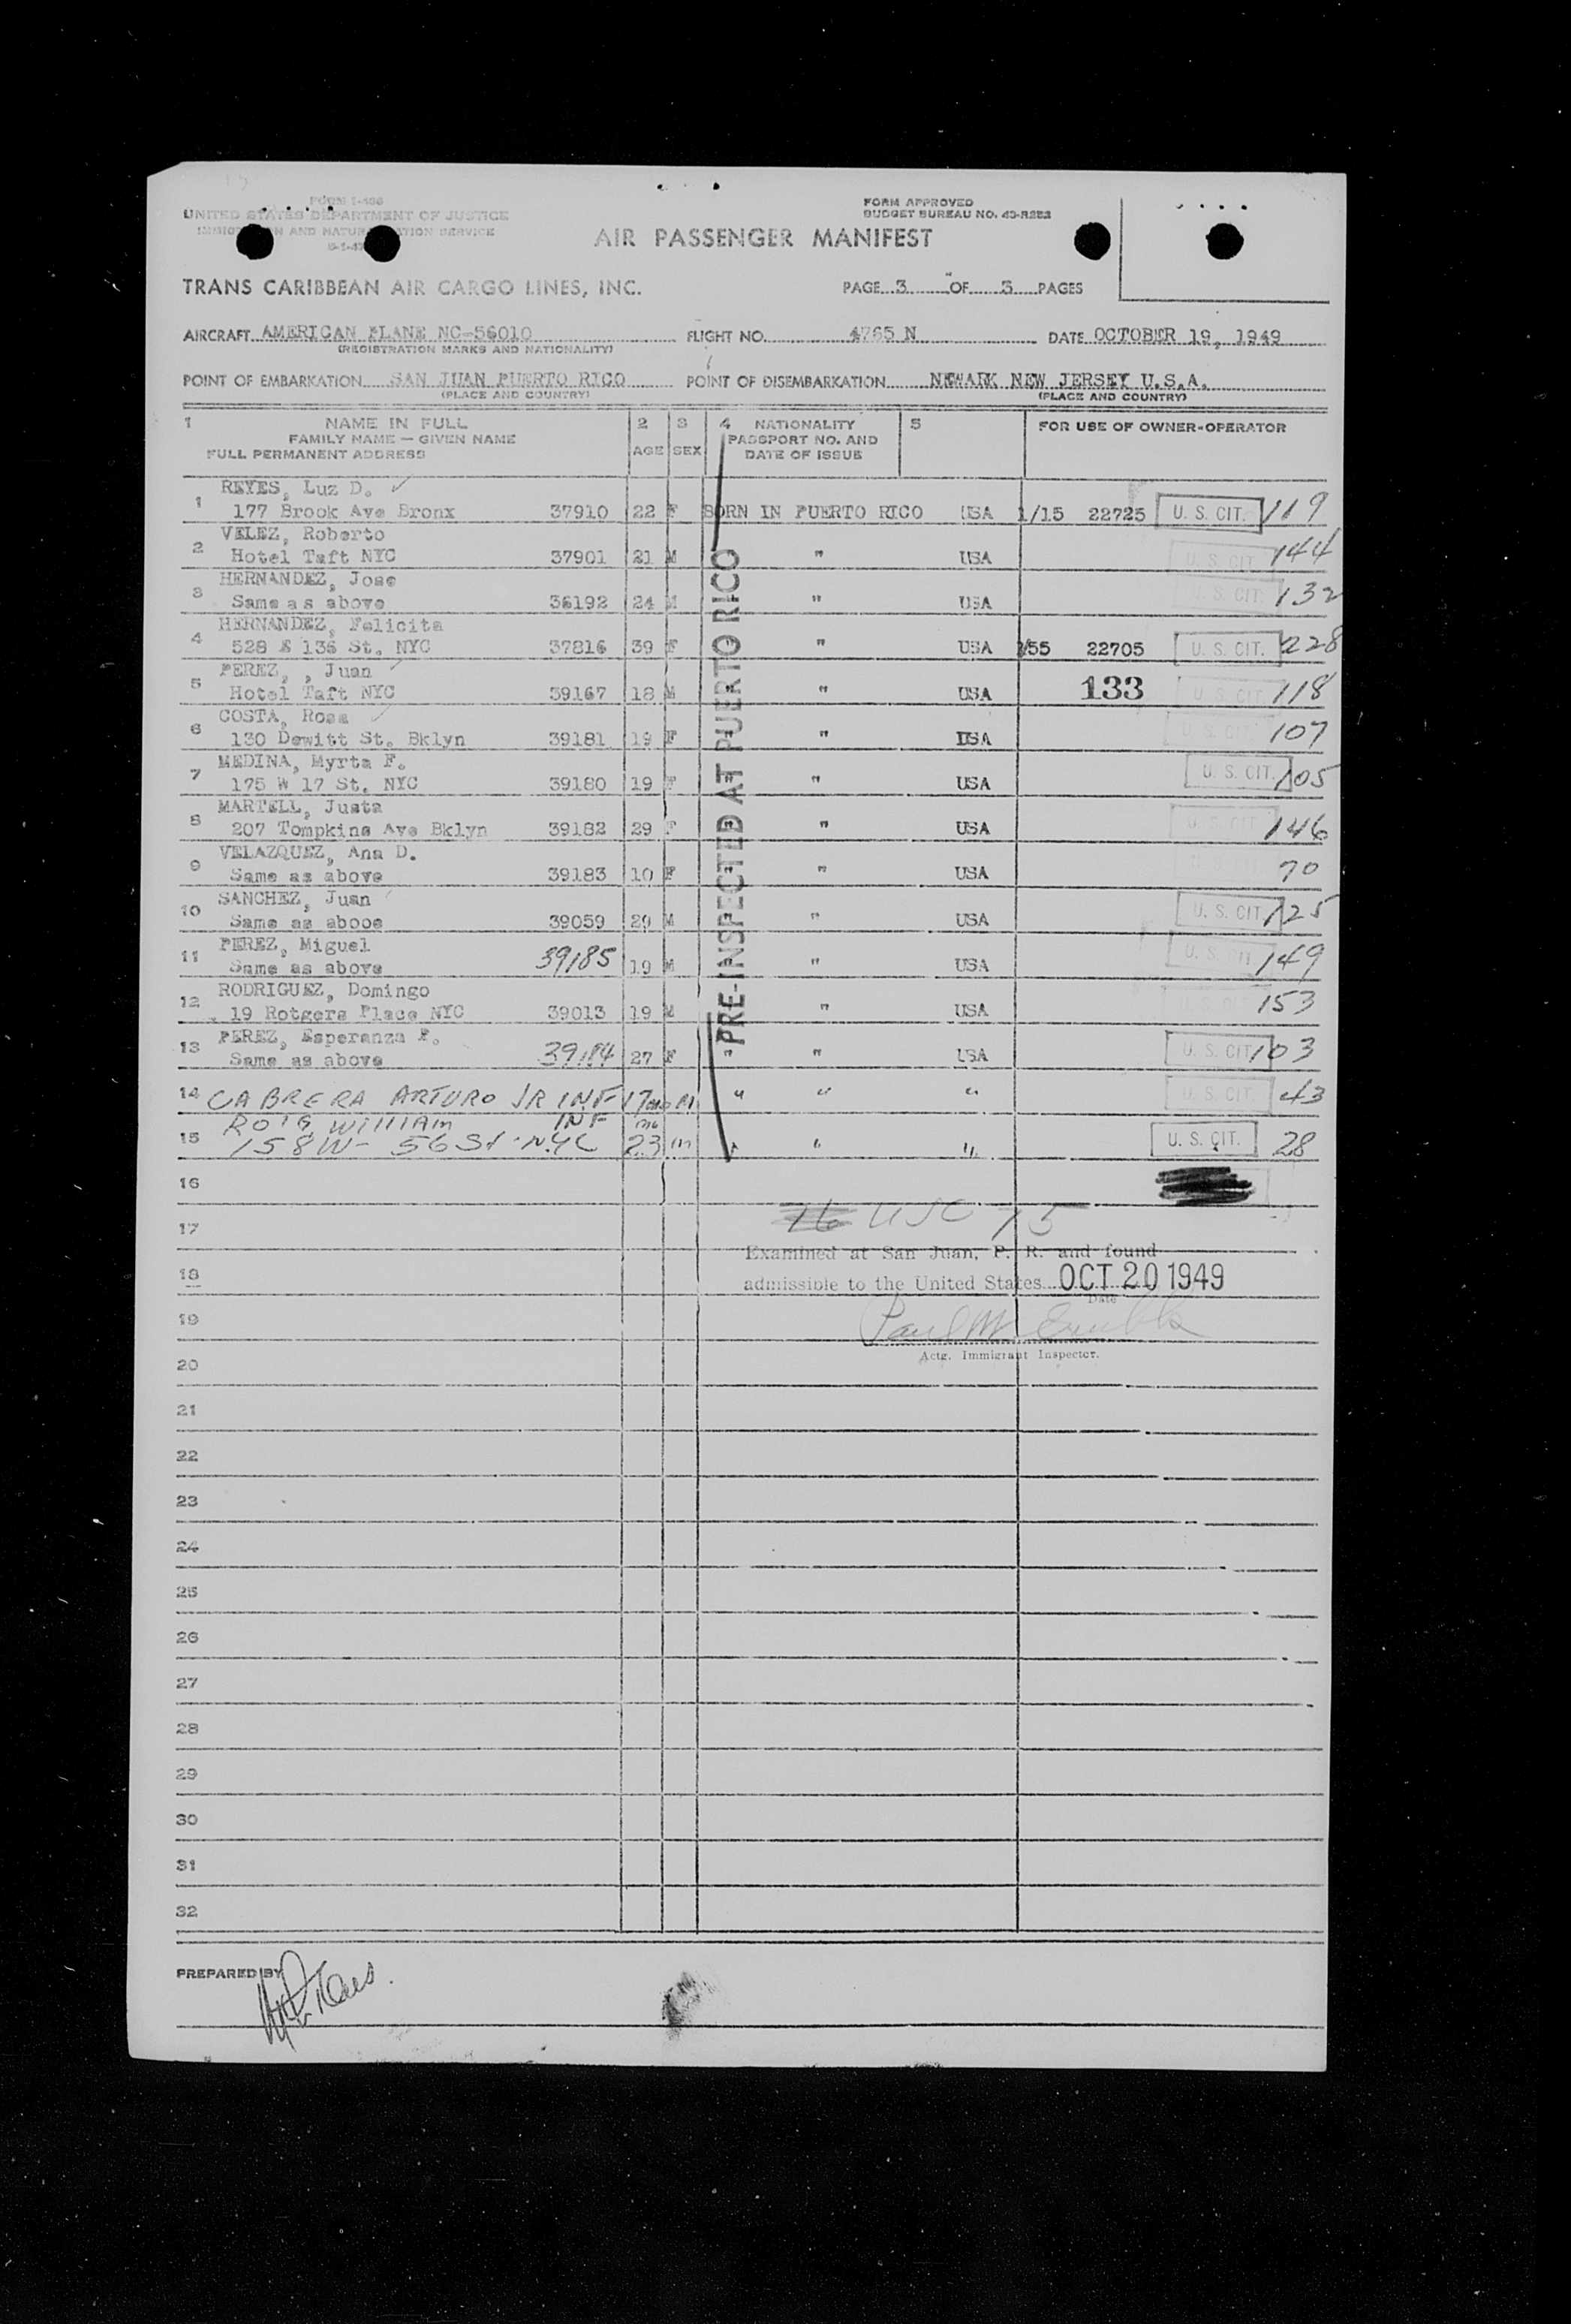 FORM I-466
UNITED STATES DEPARTMENT OF JUSTICE
AND NATUR TION SERVICE
FORM APPROVED
BUDGET BUREAU NO. 43-R253
AIR PASSENGER MANIFEST
TRANS CARIBBEAN AIR CARGO LINES, INC.
PAGE 3 OF 3 PAGES
AIRCRAFT AMERICAN PLANE NC-56010 FLIGHT NO. 4765 N DATE OCTOBER 19, 1949
(REGISTRATION MARKS AND NATIONALITY)
POINT OF EMBARKATION SAN JUAN PUERTO RICO POINT OF DISEMBARKATION NEWARK NEW JERSEY U.S.A.
(PLACE AND COUNTRY) (PLACE AND COUNTRY)
1 NAME IN FULL 2 3 4 NATIONALITY 5 FOR USE OF OWNER-OPERATOR
FAMILY NAME — GIVEN NAME PASSPORT NO. AND
FULL PERMANENT ADDRESS AGE SEX DATE OF ISSUE
PRE-INSPECTED AT PUERTO RICO
REYES, Luz D. ✓
1 177 Brook Ave Bronx 37910 22 F BORN IN PUERTO RICO USA 1/15 22725 U. S. CIT. 119
VELEZ, Roberto
2 Hotel Taft NYC 37901 21 M " USA U. S. CIT. 144
HERNANDEZ, Jose
3 Same as above 36192 24 M " USA U. S. CIT. 132
HERNANDEZ, Felicita
4 528 E 136 St. NYC 37816 39 F " USA /55 22705 U. S. CIT. 228
PEREZ, , Juan ✓
5 Hotel Taft NYC 39167 18 M " USA 133 U. S. CIT. 118
COSTA, Rosa ✓
6 130 Dewitt St. Bklyn 39181 19 F " USA U. S. CIT. 107
MEDINA, Myrta F.
7 175 W 17 St. NYC 39180 19 F " USA U. S. CIT. 105
MARTELL, Justa
8 207 Tompkins Ave Bklyn 39182 29 F " USA U. S. CIT. 146
VELAZQUEZ, Ana D.
9 Same as above 39183 10 F " USA U. S. CIT. 70
SANCHEZ, Juan
10 Same as abooe 39059 20 M " USA U. S. CIT. 125
PEREZ, Miguel
11 Same as above 39185 19 M " USA U. S. CIT. 149
RODRIGUEZ, Domingo
12 19 Rotgers Place NYC 39013 19 M " USA U. S. CIT. 153
PEREZ, Esperanza P.
13 Same as above 39184 27 F " " USA U. S. CIT. 103
14 CABRERA ARTURO JR INF 17 mo M " " " U. S. CIT. 43
ROIG WILLIAM INF mo
15 158 W- 56 St - NYC 23 m " " " U. S. CIT. 28
16
16 USC 15
17
Examined at San Juan, P. R. and found
18 admissible to the United States OCT 20 1949
Date
19
Actg. Immigrant Inspector.
20
21
22
23
24
25
26
27
28
29
30
31
32
PREPARED BY